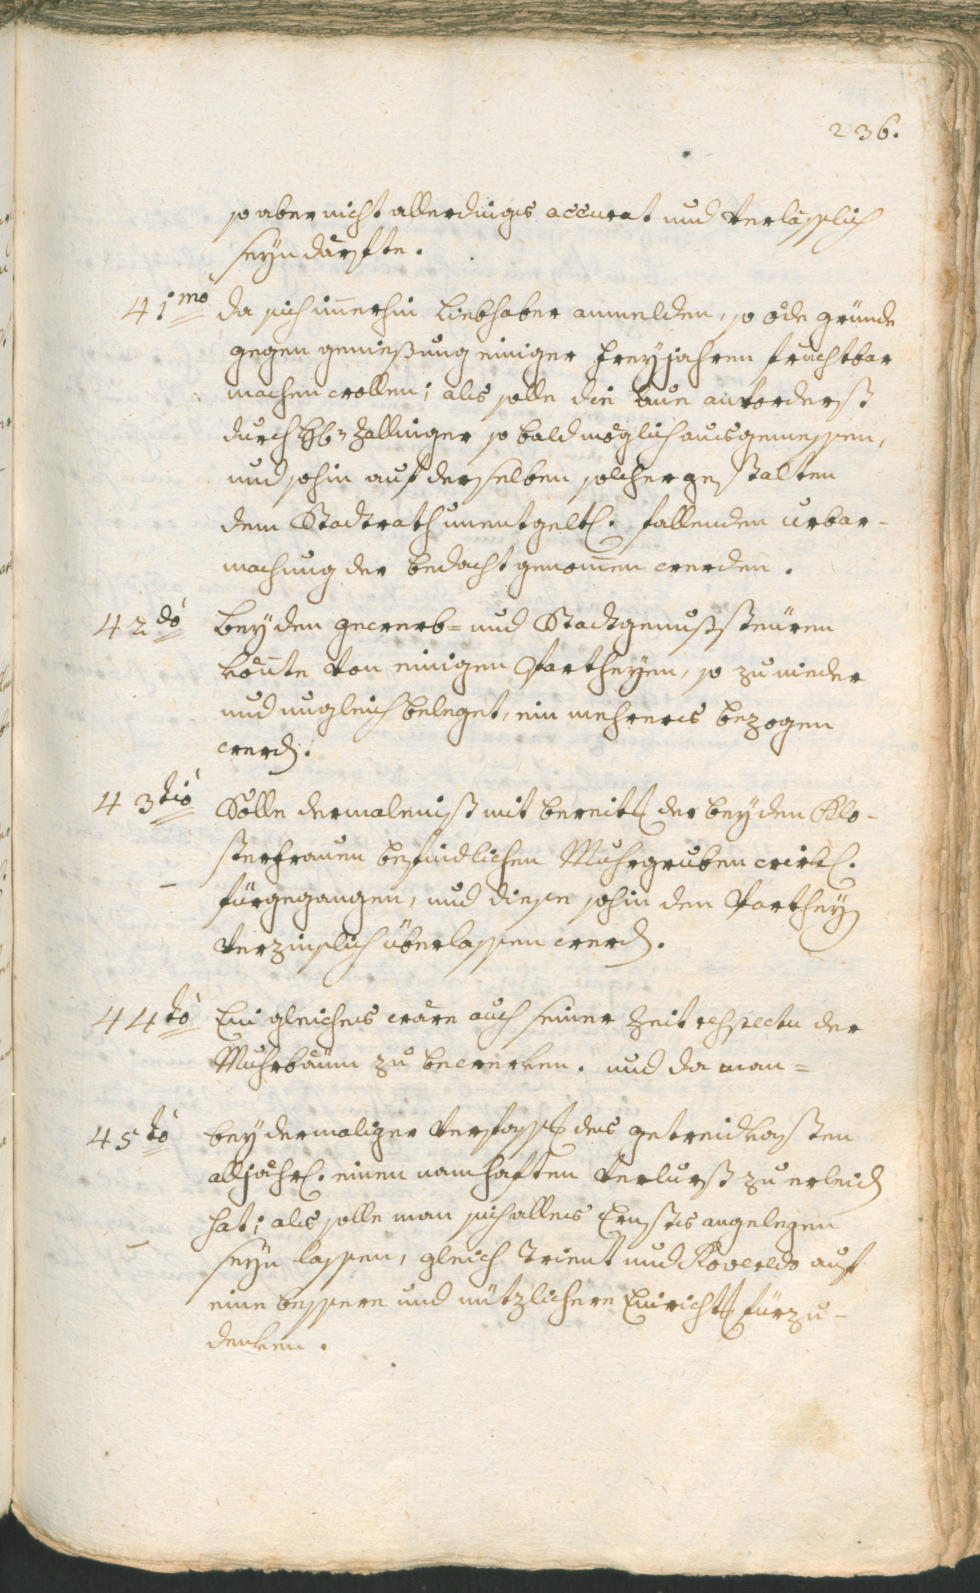 236.
so aber nicht allerdings accurat und verlässlich
seyn därfte.
41mo da sich im̅erhin Liebhaber anmelden, so öde gründe
gegen geniessung einiger freyjahren fruchtbar
machen wollen; als solle die Aue anvorderst
durch H: Zallinger so bald möglich ausgemessen,
und sohin auf derselben solchergestalten
dem Stadtrath unentgeltl. fallenden urbar-
machung der bedacht genom̅en werden.
42do bey den gewerb- und Stadtgenußsteüren
kön̅te von einigen Partheyen, so zu nieder
und ungleich beleget, ein mehrers bezogen
werd.
43tio Solle dermalenist mit bereitt der bey den Klo-
sterfrauen befindlichen Muhrgruben wirkl.
fürgegangen, und diese sohin den Parthey
verzinslich überlassen werd.
44to Ein gleiches wäre auch seiner Zeit respectu der
Muhrbäum zu bewerken. und da man=
45to bey dermaliger verfass des getreidkasten
alljährl. einen namhaften verlurst zu erleid
hat; als solle man sich alles Ernstes angelegen
seyn lassen, gleich Trient und Roveredo auf
eine bessere und nützlichere Einricht fürzu-
denken.